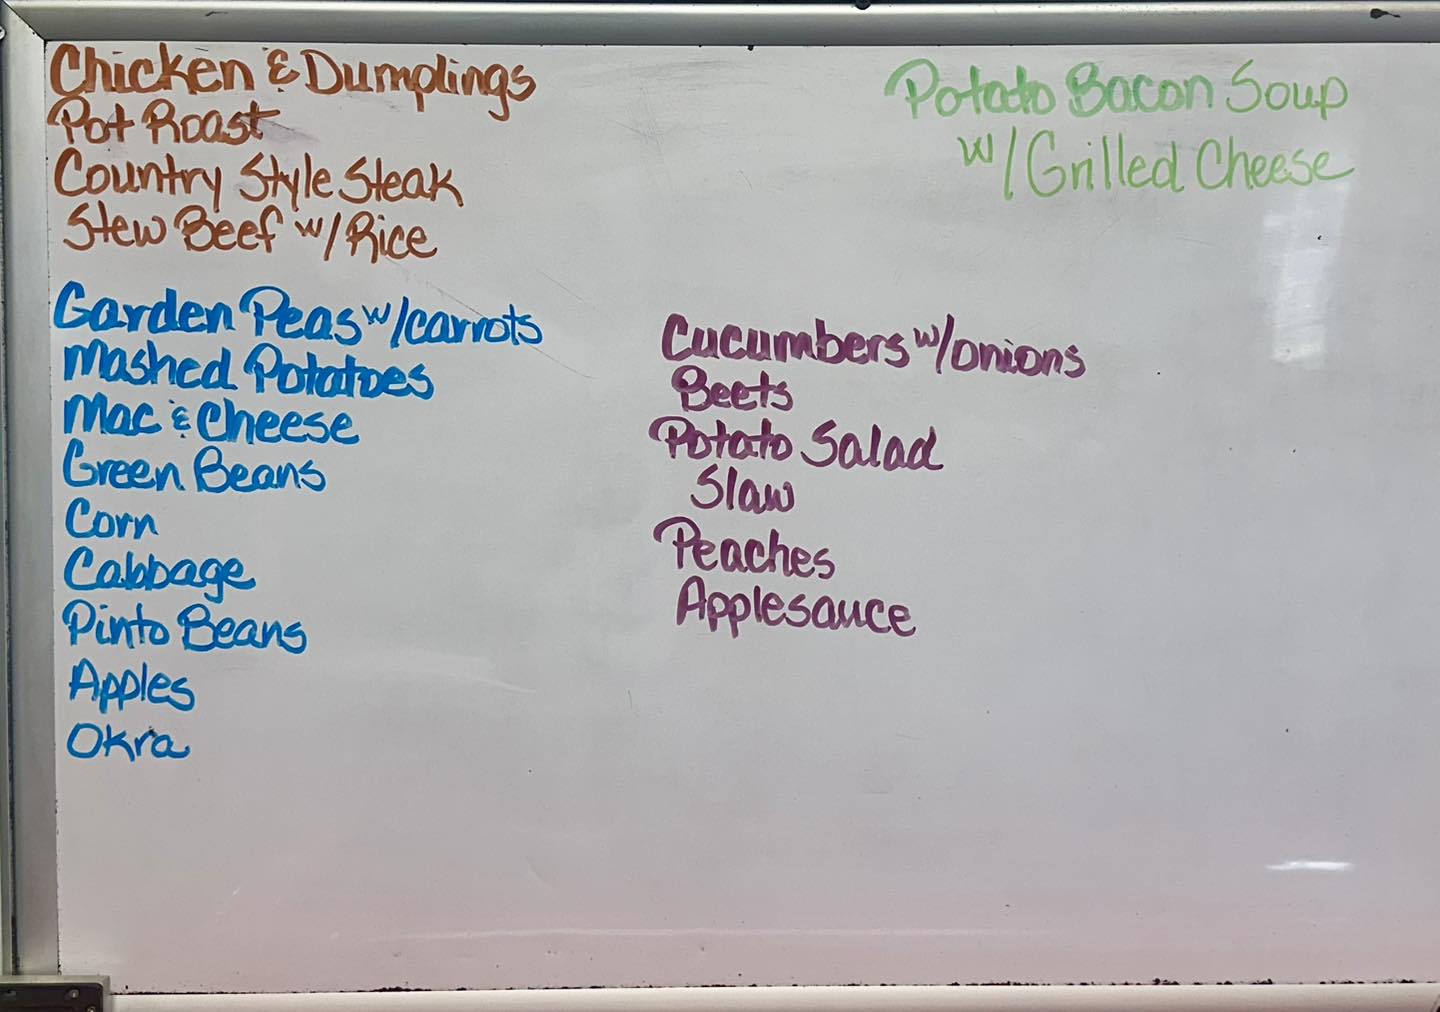 Chicken & Dumplings
Pot Roast
Country Style Steak
Stew Beef w/ Rice
Potato Bacon Soup
w/ Grilled Cheese
Garden Peas w/carrots
Mashed Potatoes
Mac & Cheese
Green Beans
Corn
Cabbage
Pinto Beans
Apples
Okra
Cucumbers w/onions
Beets
Potato Salad
Slaw
Peaches
Applesauce